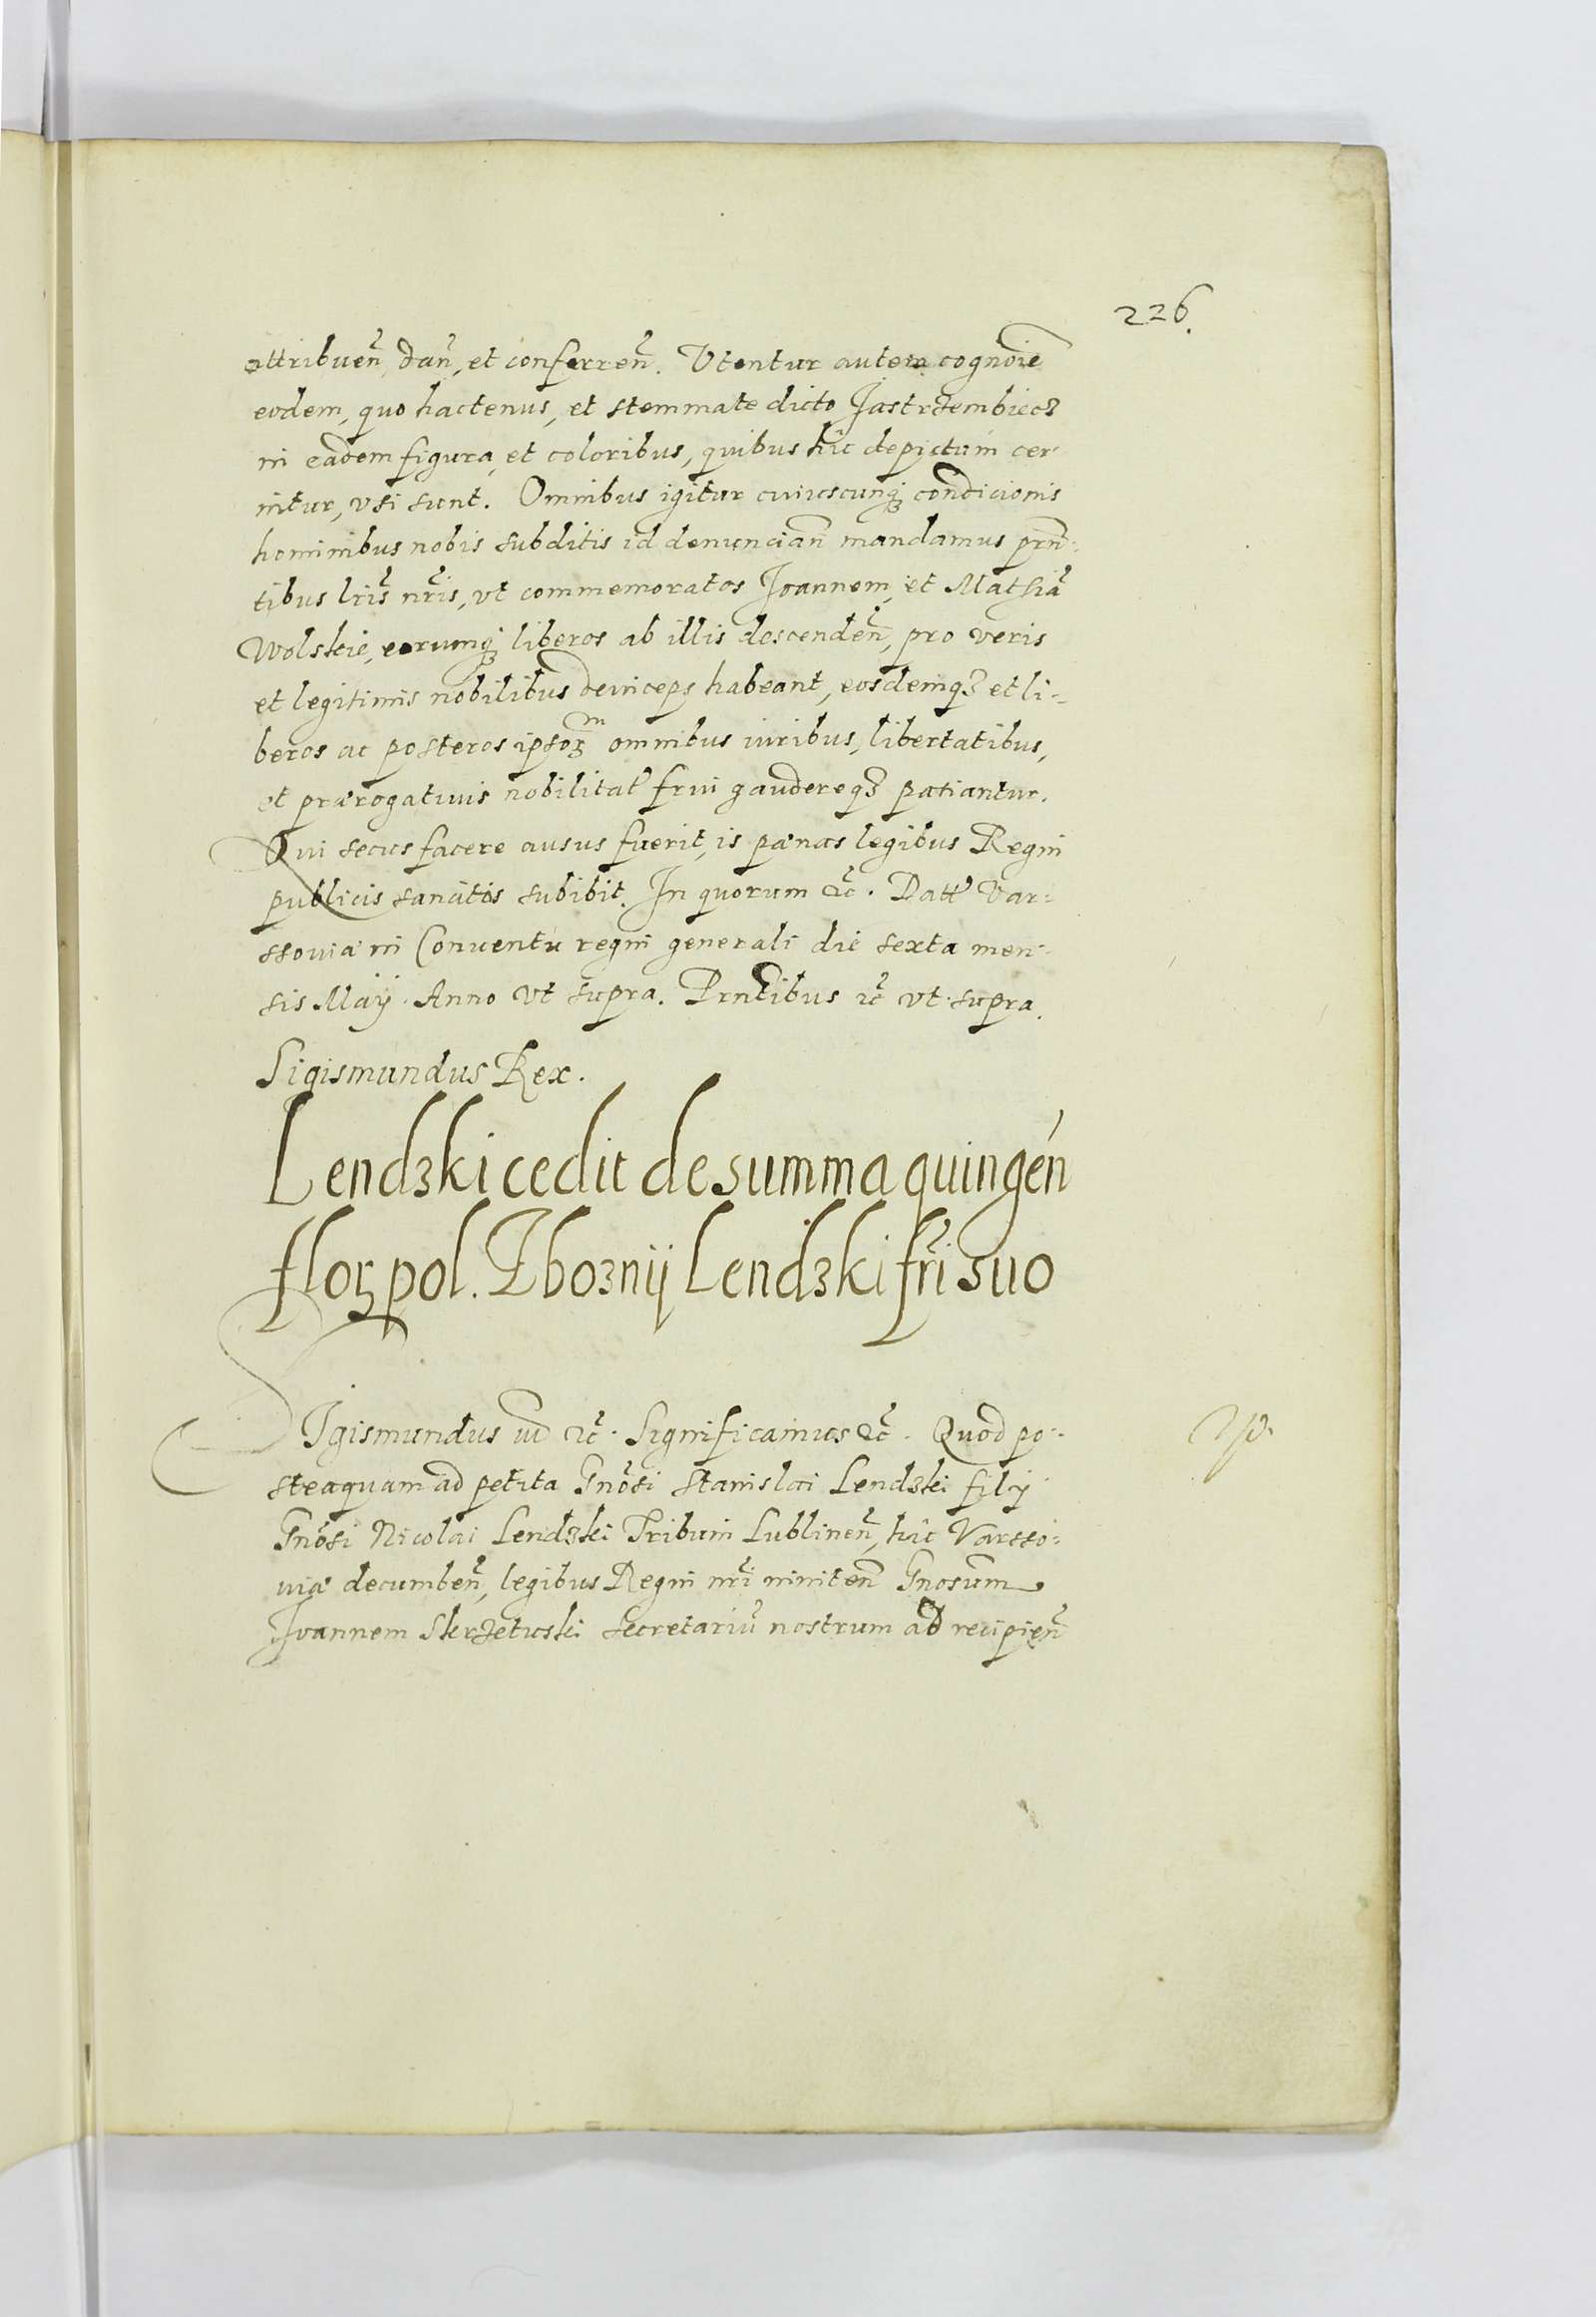 226.
attribuen̄, dan̄, et conferren̄. Utentur autem cognoīe
eodem, quo hactenus, et stemmate dicto Jastrzembiecz
in eadem figura, et coloribus, quibus hîc depictum cer-
nitur, vsi sunt. Omnibus igitur cuiuscunq́ꝫ condicionis
hominibus nobis subditis id denuncian̄ mandamus prn̄-
tibus lrīs nrīs, vt commemoratos Joannem, et Mathiā
Wolskie, eorumq́ꝫ liberos ab illis descenden̄, pro veris
et legitimis nobilibus deinceps habeant, eosdemqꝫ et li-
beros ac posteros ipsoꝝ omnibus iuribus, libertatibus,
et prærogatiuis nobilitat' frui gaudereqꝫ patiantur.
Qui secus facere ausus fuerit, is pœnas legibus Regni
publicis sancitas subibit. In quorum &c̄. Datt' Var-
ssouiæ in Conuentu regni generali die sexta men-
sis Maÿ. Anno vt supra. Prntibus &c̄ vt supra.
Sigismundus Rex.
Lendzki cedit de summa quingen̄
floꝝ pol. Zboznij Lendzki frī suo
SIgismundus iii &c̄. Significamus &c̄. Quod po-
steaquam ad petita Gnōsi Stanislai Lendzki filÿ
Gnōsi Nicolai Lendzki Tribuni Lublinen̄, hîc Varsso-
uiæ decumben̄, legibus Regni nrī niniten̄ Gnosum
Joannem Skrzetuski Secretariū nostrum ad recipien̄